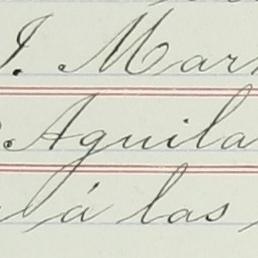 J. Mar
Aguila
á las